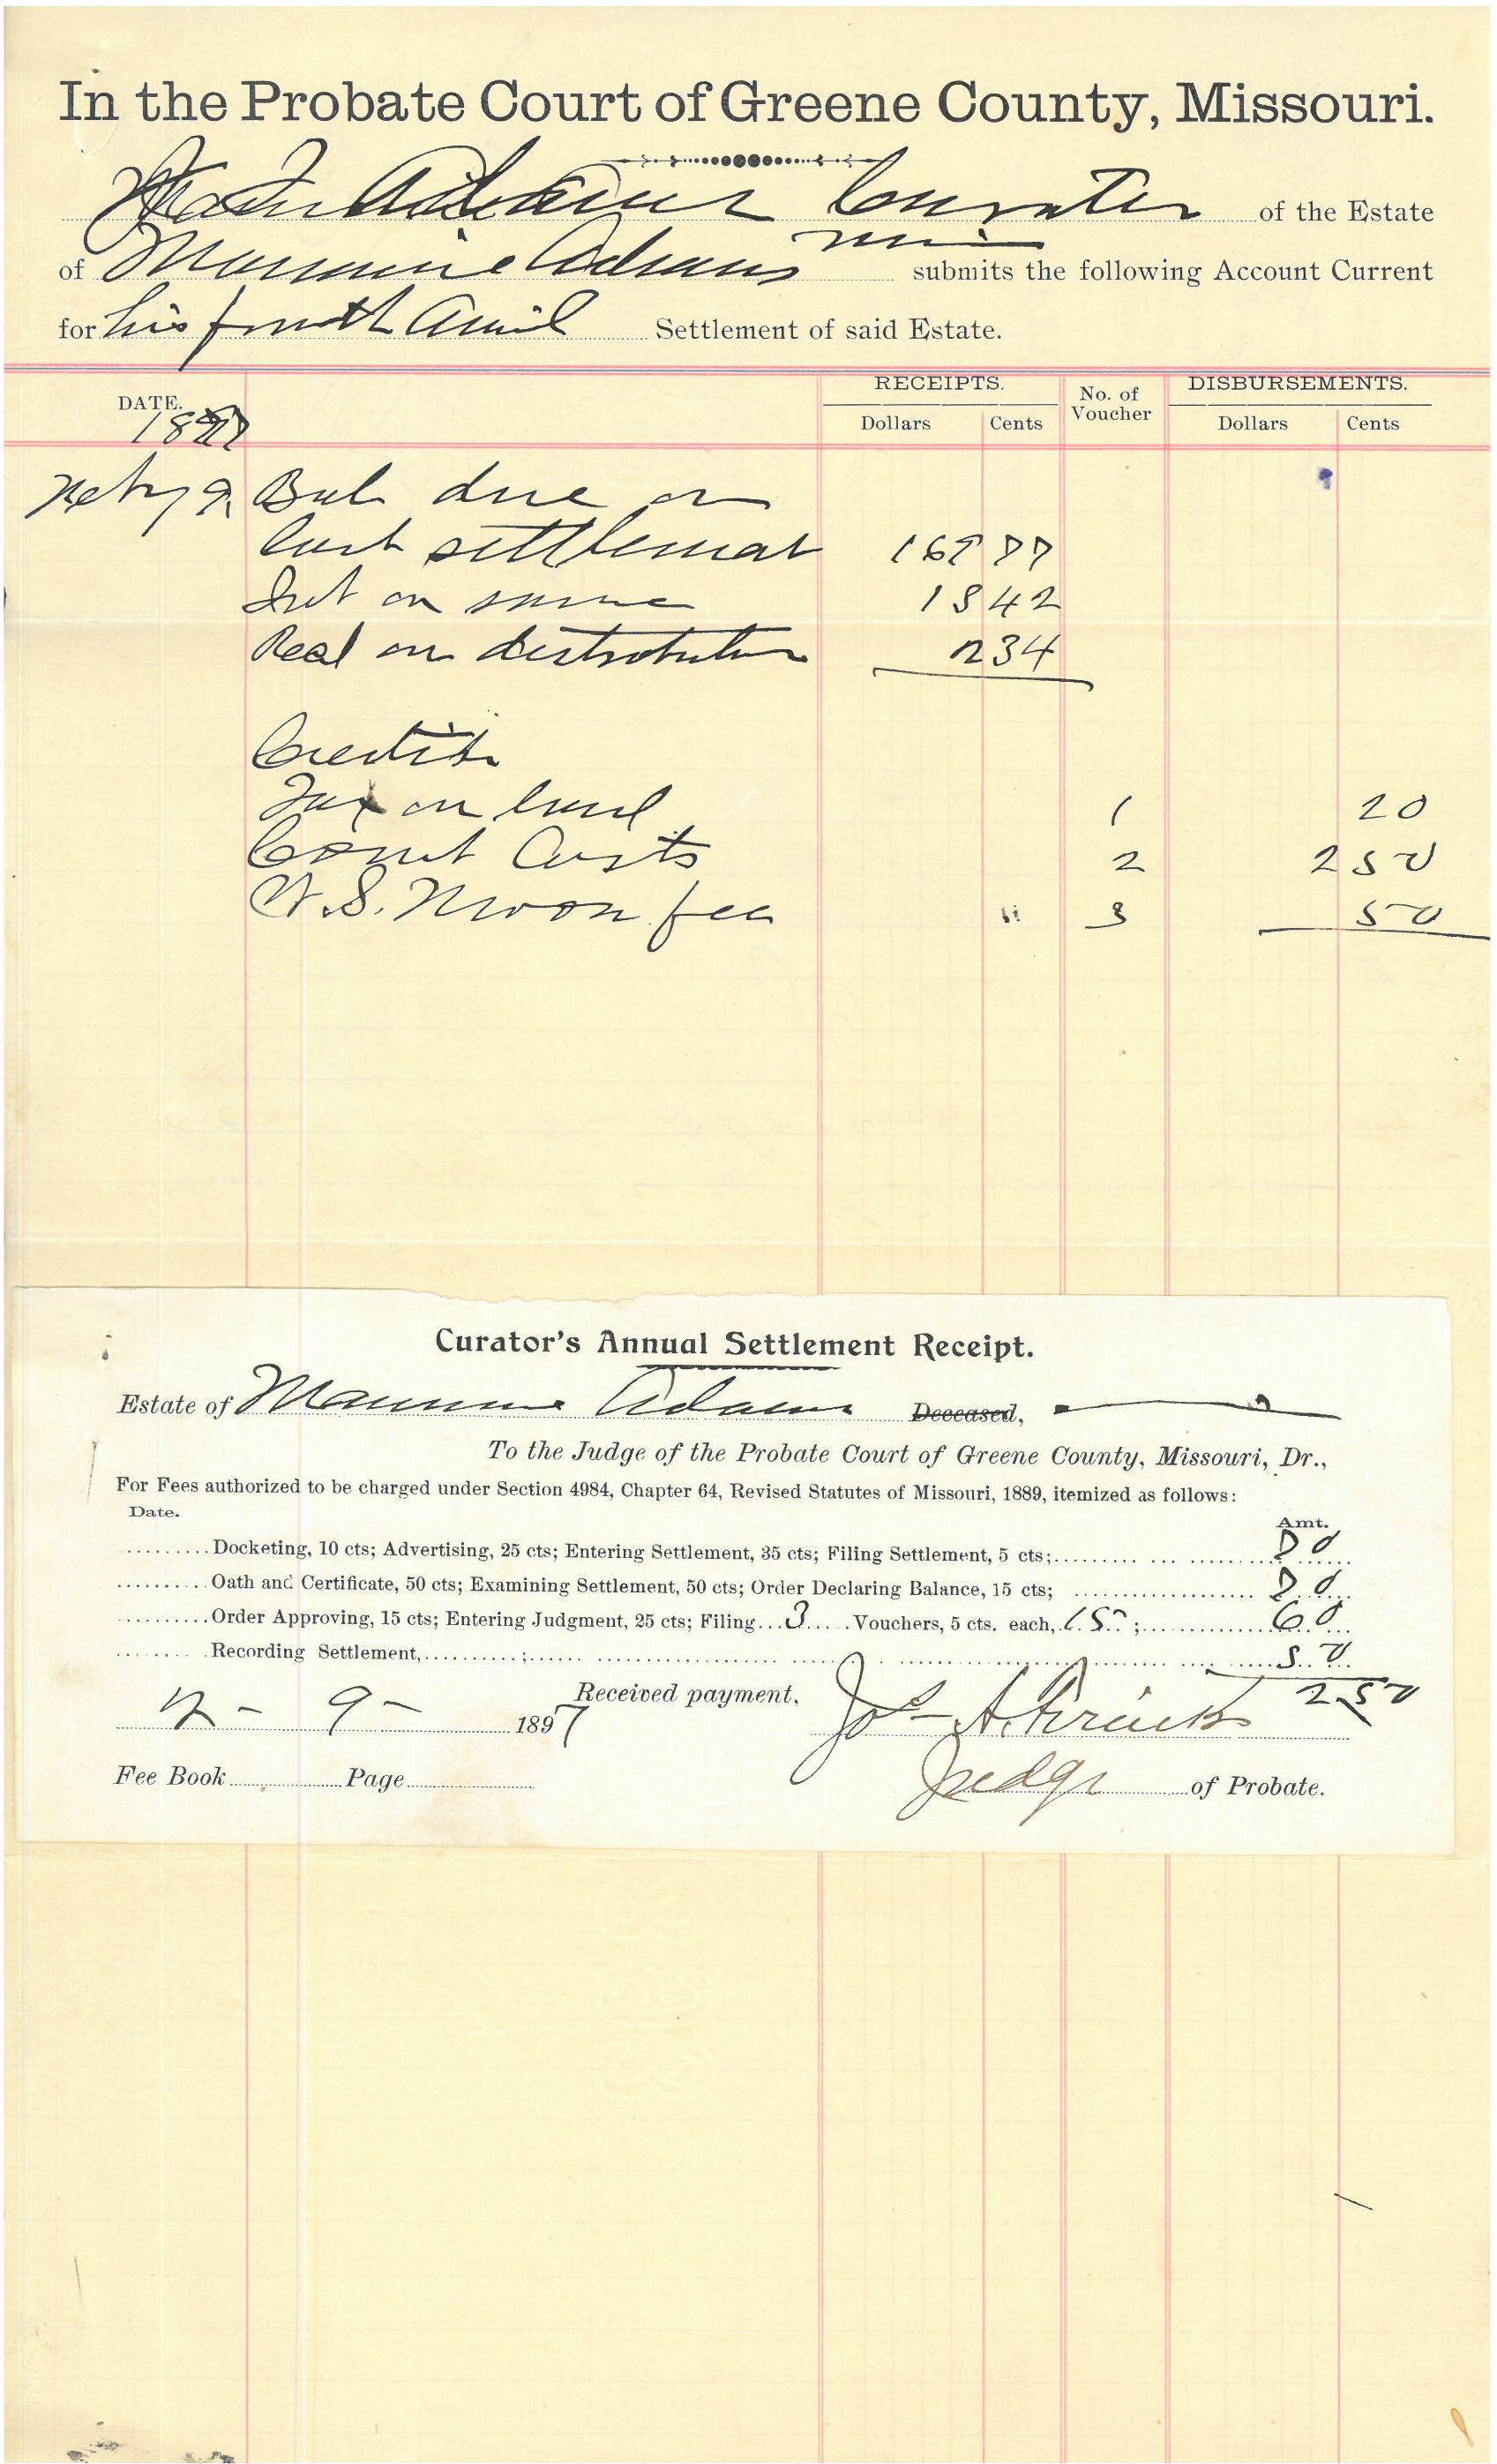 In the Probate Court of Greene County, Missouri.
Adams Curator of the Estate
of Mammie Adams submits the following Account Current
for his fourth Settlement of said Estate.
RECEIPTS. No. of Voucher DISBURSEMENTS.
DATE. Dollars Cents Dollars Cents
189
Bal due on
last settlement
Int on same 18 42
Recd on distribution 2 34
Credits
Tax on land 1 20
Court Costs 2 2 50
W. S. Moon fee 3 50
Curator's Annual Settlement Receipt.
Estate of Mammie Adams Deceased,
To the Judge of the Probate Court of Greene County, Missouri, Dr.,
For Fees authorized to be charged under Section 4984, Chapter 64, Revised Statutes of Missouri, 1889, itemized as follows:
Date. Amt.
Docketing, 10 cts; Advertising, 25 cts; Entering Settlement, 35 cts; Filing Settlement, 5 cts;
Oath and Certificate, 50 cts; Examining Settlement, 50 cts; Order Declaring Balance, 15 cts;
Order Approving, 15 cts; Entering Judgment, 25 cts; Filing 3 Vouchers, 5 cts. each, 15; 60
Recording Settlement, 50
Received payment, 2 50
9 1897
Fee Book Page Judge of Probate.